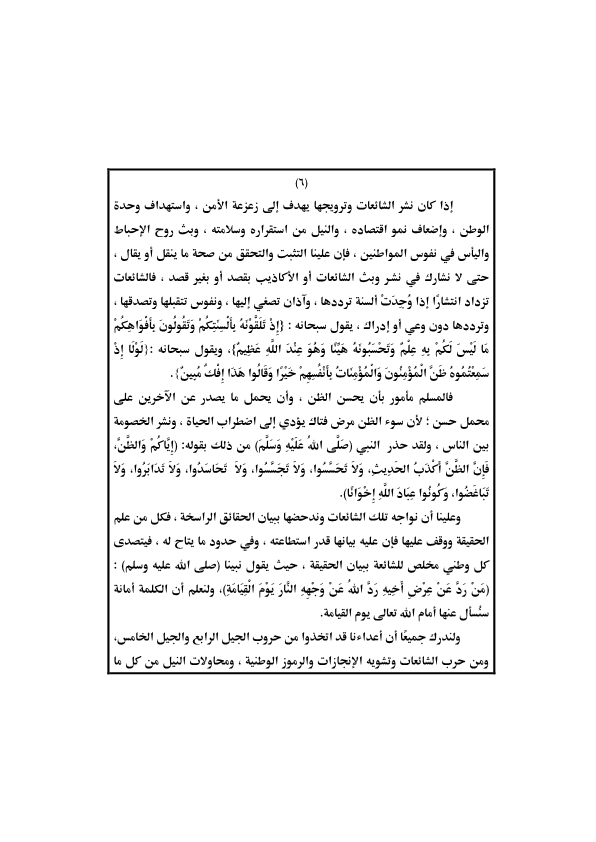 (٦)
إذا كان نشر الشائعات وترويجها يهدف إلى زعزعة الأمن ، واستهداف وحدة
الوطن ، وإضعاف نمو اقتصاده ، والنيل من استقراره وسلامته ، وبث روح الإحباط
واليأس في نفوس المواطنين ، فإن علينا التثبت والتحقق من صحة ما ينقل أو يقال ،
حتى لا نشارك في نشر وبث الشائعات أو الأكاذيب بقصد أو بغير قصد ، فالشائعات
تزداد انتشارًا إذا وُجِدَتْ ألسنة ترددها ، وآذان تصغي إليها ، ونفوس تتقبلها وتصدقها ،
وترددها دون وعي أو إدراك ، يقول سبحانه : {إِذْ تَلَقَّوْنَهُ بِأَلْسِنَتِكُمْ وَتَقُولُونَ بِأَفْوَاهِكُمْ
مَا لَيْسَ لَكُمْ بِهِ عِلْمٌ وَتَحْسَبُونَهُ هَيِّنًا وَهُوَ عِنْدَ اللَّهِ عَظِيمٌ}، ويقول سبحانه :{لَوْلَا إِذْ
سَمِعْتُمُوهُ ظَنَّ الْمُؤْمِنُونَ وَالْمُؤْمِنَاتُ بِأَنْفُسِهِمْ خَيْرًا وَقَالُوا هَذَا إِفْكٌ مُبِينٌ}.
فالمسلم مأمور بأن يحسن الظن ، وأن يحمل ما يصدر عن الآخرين على
محمل حسن ؛ لأن سوء الظن مرض فتاك يؤدي إلى اضطراب الحياة ، ونشر الخصومة
بين الناس ، ولقد حذر النبي (صَلَّى اللهُ عَلَيْهِ وَسَلَّمَ) من ذلك بقوله: (إِيَّاكُمْ وَالظَّنَّ،
فَإِنَّ الظَّنَّ أَكْذَبُ الحَدِيثِ، وَلاَ تَحَسَّسُوا، وَلاَ تَجَسَّسُوا، وَلاَ تَحَاسَدُوا، وَلاَ تَدَابَرُوا، وَلاَ
تَبَاغَضُوا، وَكُونُوا عِبَادَ اللَّهِ إِخْوَانًا).
وعلينا أن نواجه تلك الشائعات وندحضها ببيان الحقائق الراسخة ، فكل من علم
الحقيقة ووقف عليها فإن عليه بيانها قدر استطاعته ، وفي حدود ما يتاح له ، فيتصدى
كل وطني مخلص للشائعة ببيان الحقيقة ، حيث يقول نبينا (صلى الله عليه وسلم) :
(مَنْ رَدَّ عَنْ عِرْضِ أَخِيهِ رَدَّ اللهُ عَنْ وَجْهِهِ النَّارَ يَوْمَ الْقِيَامَةِ)، ولنعلم أن الكلمة أمانة
سنُسأل عنها أمام الله تعالى يوم القيامة.
ولندرك جميعًا أن أعداءنا قد اتخذوا من حروب الجيل الرابع والجيل الخامس،
ومن حرب الشائعات وتشويه الإنجازات والرموز الوطنية ، ومحاولات النيل من كل ما